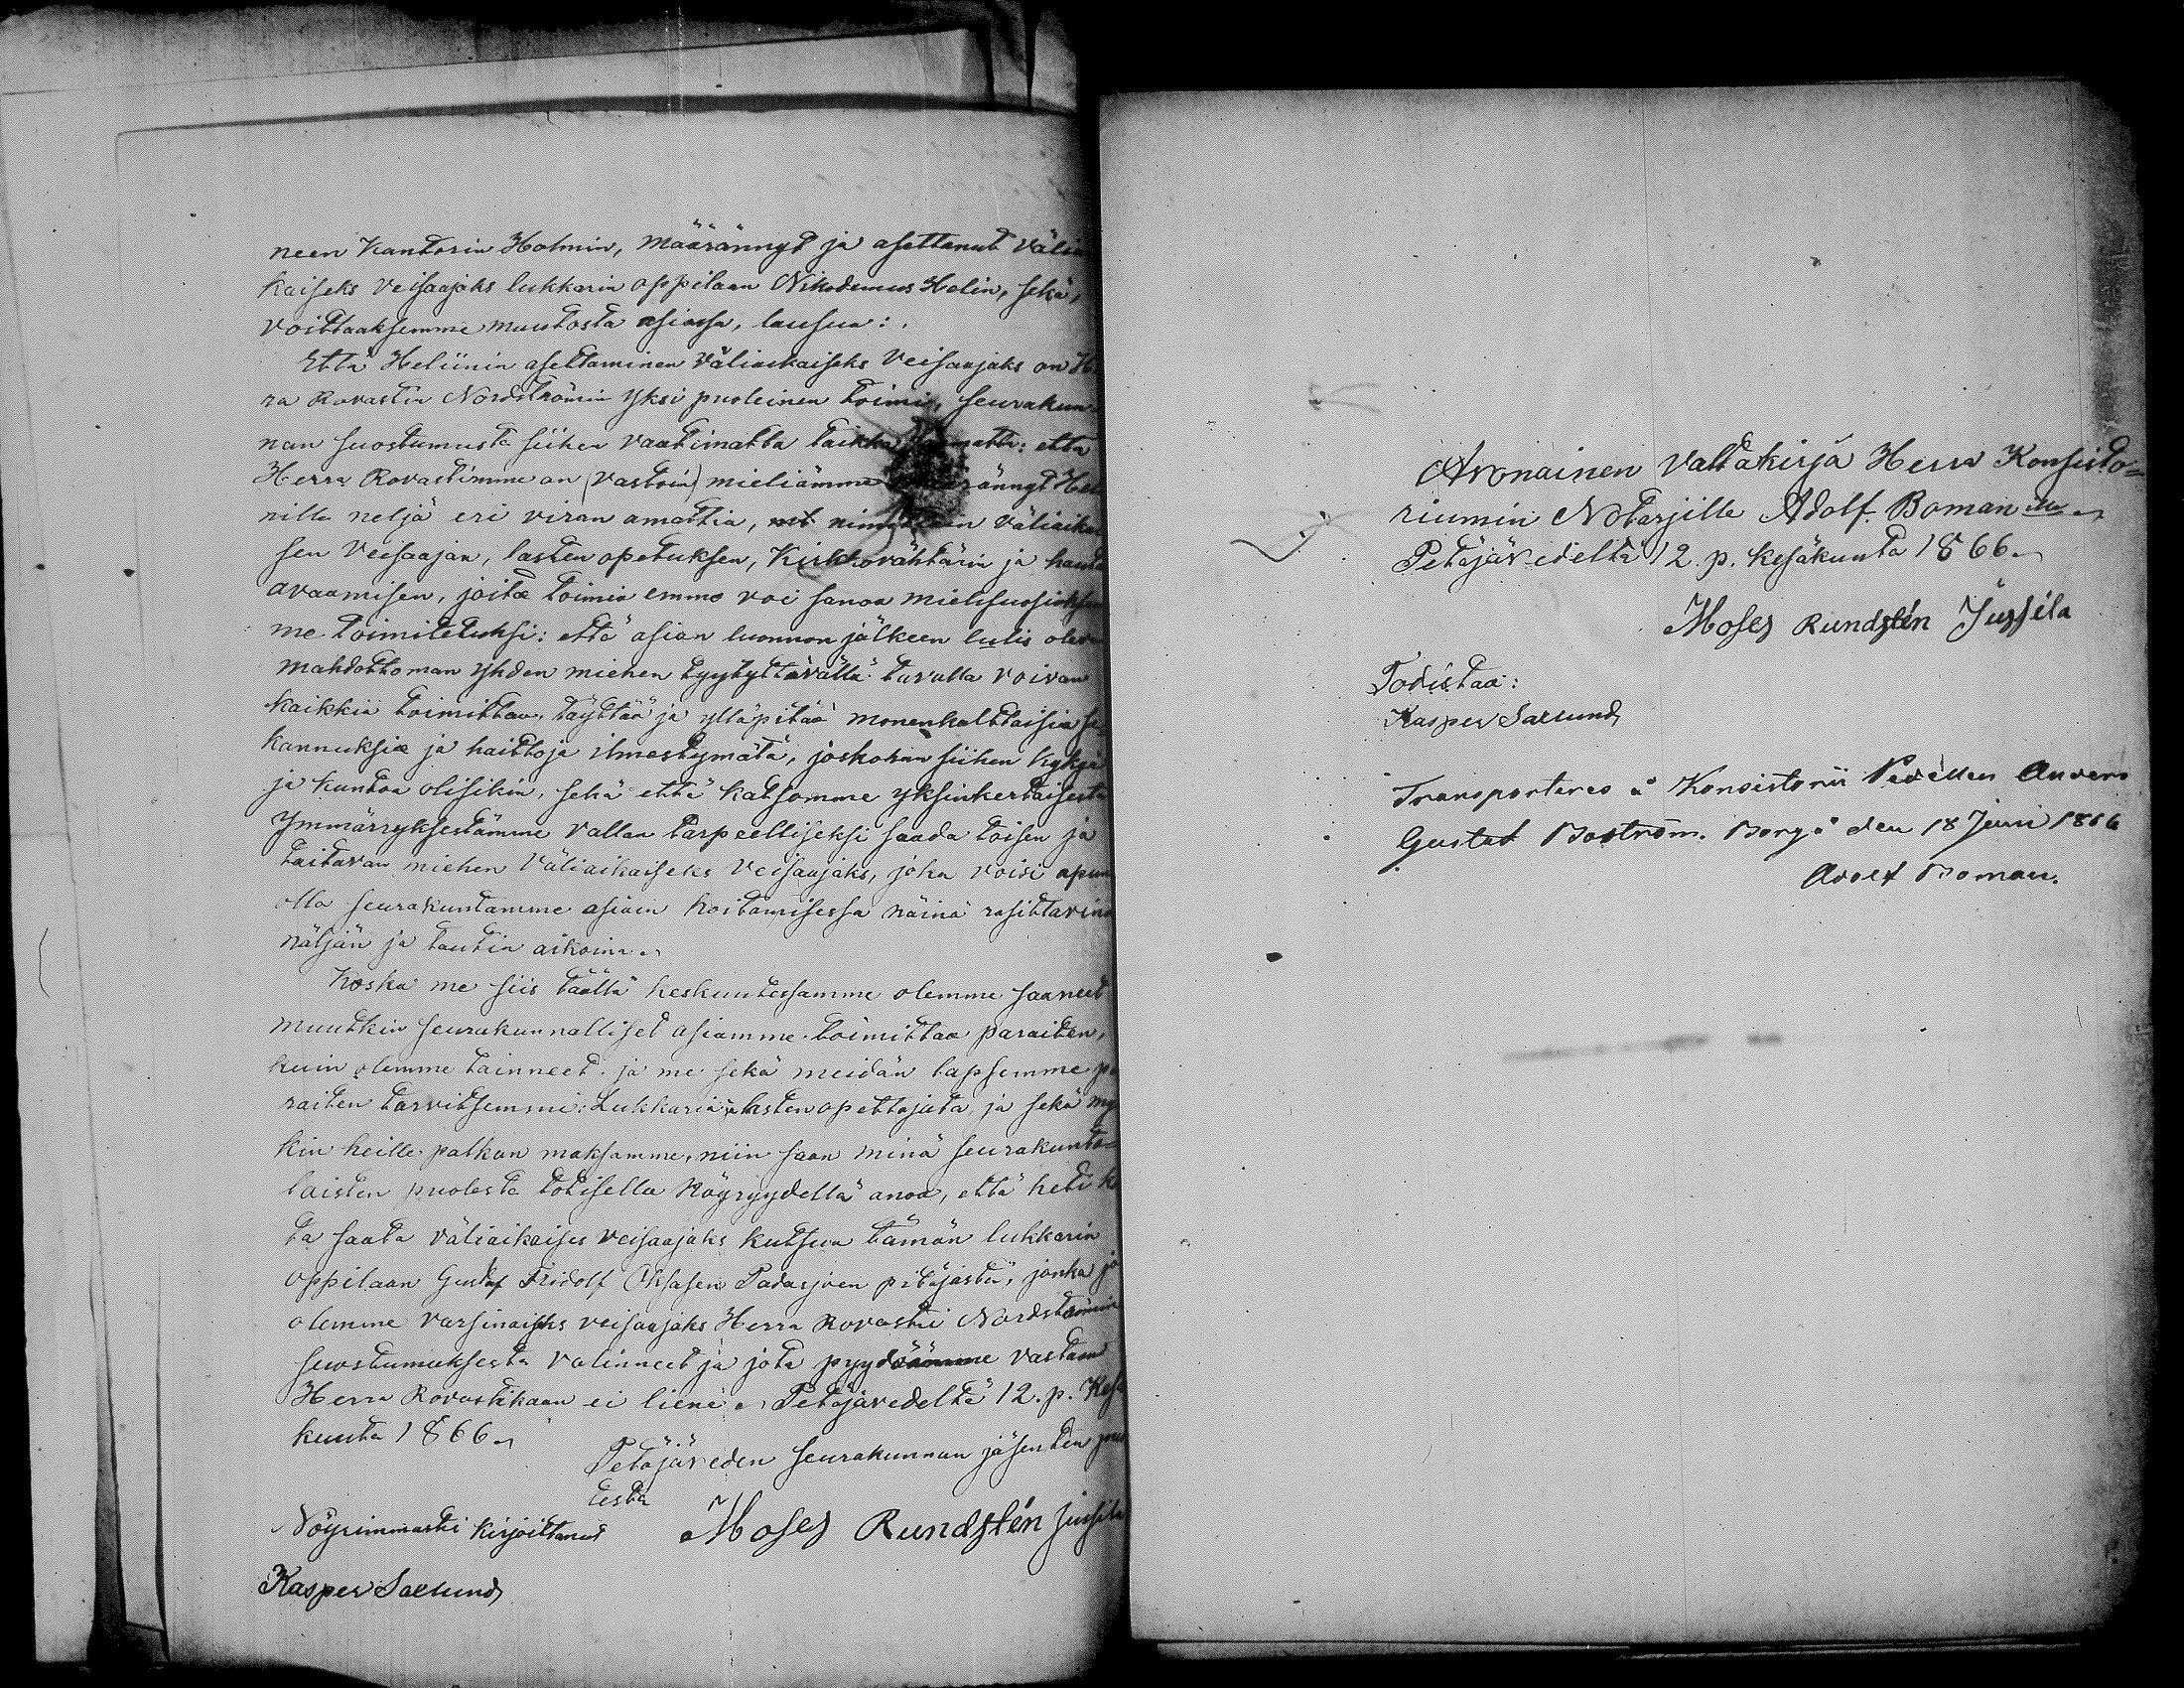 neen Kantorin Holmin, määrännyt ja asettanut väliai
kaiseks veisaajaks lukkarin oppilaan Nikodemus Helin, sekä,
voittaaksemme muutosta asiassa, lausua:
Että Heliinin asettaminen väliaikaiseks veisaajaks on He
ra Rovastin Nordströmin yksi puoleinen toimi, seurakun
nan suostumusta siihen vaatimatta taikka        : että
Herra Rovastimme on (vastoin) mieliämme määrännyt Hel
nille neljä eri viran amattia,  nimittäin väliaikai
sen veisaajan, lasten opetuksen, Kirkkovahtärin ja hauta
avaamisen, joita toimia emme voi sanoa mielisuosioksem
me toimitetuksi: että asian luonnon jälkeen lulis oleva
mahdottoman yhden miehen tyytyttävällä tavalla voivan
kaikkia toimittaa, täyttää ja ylläpitää monenkalttaisia se
kannuksia ja haittoja ilmestymätä, joskohan siihen kykyä
ja kuntoa olisikin, sekä että katsomme yksinkertaisesta
ymmärryksestämme vallan tarpeelliseksi saada toisen ja
taitavan miehen väliaikaiseks veisaajaks, joka voisi apuna
olla seurakuntamme asiain hoitamisessa näinä rasittavina
näljän ja tautin aikoina.
Koska me siis täällä keskuutessamme olemme saaneet
muutkin seurakunnalliset asiamme toimittaa paraiten,
kuin olemme tainneet, ja me sekä meidän lapsemme pa
raiten tarvitsemmi: Lukkaria ja lasten opettajata ja sekä my
kin heille palkan maksamme, niin saan minä seurakunta
laisten puolesta totisella Nöyryydellä anoa, että heti k
ta saata väliaikaises veisaajaks kutsua tämän lukkarin
oppilaan Gustaf Fridolf Oksasen Padasjoen pitäjästä, jonka jo
olemme varsinaiseks veisaajaks Herra Rovasti Nordströmin
suostumuksesta valinneet ja jota pyydäämme vastaan
Herra Rovastikaan ei liene. Petäjävedeltä 12. p. Kesä
kuuta 1866.
Petäjäveden seurakunnan jäsenten puo
lesta
Moses Rundstén Jussila
Nöyrimmästi Kirjoittanut
Kasper Saxlund
Avonainen valtakirja Herra Konsisto=
riumin Notarjille Adolf Boman ille.
Petäjävedeltä 12. p. kesäkuuta 1866.
Moses Rundstén Jussila
Todistaa:
Kasper Saxlund
Transporteres å Konsistorii Pedellen Anders
Gustaf Boström. Borgå den 18 Juni 1866
Adolf Boman.